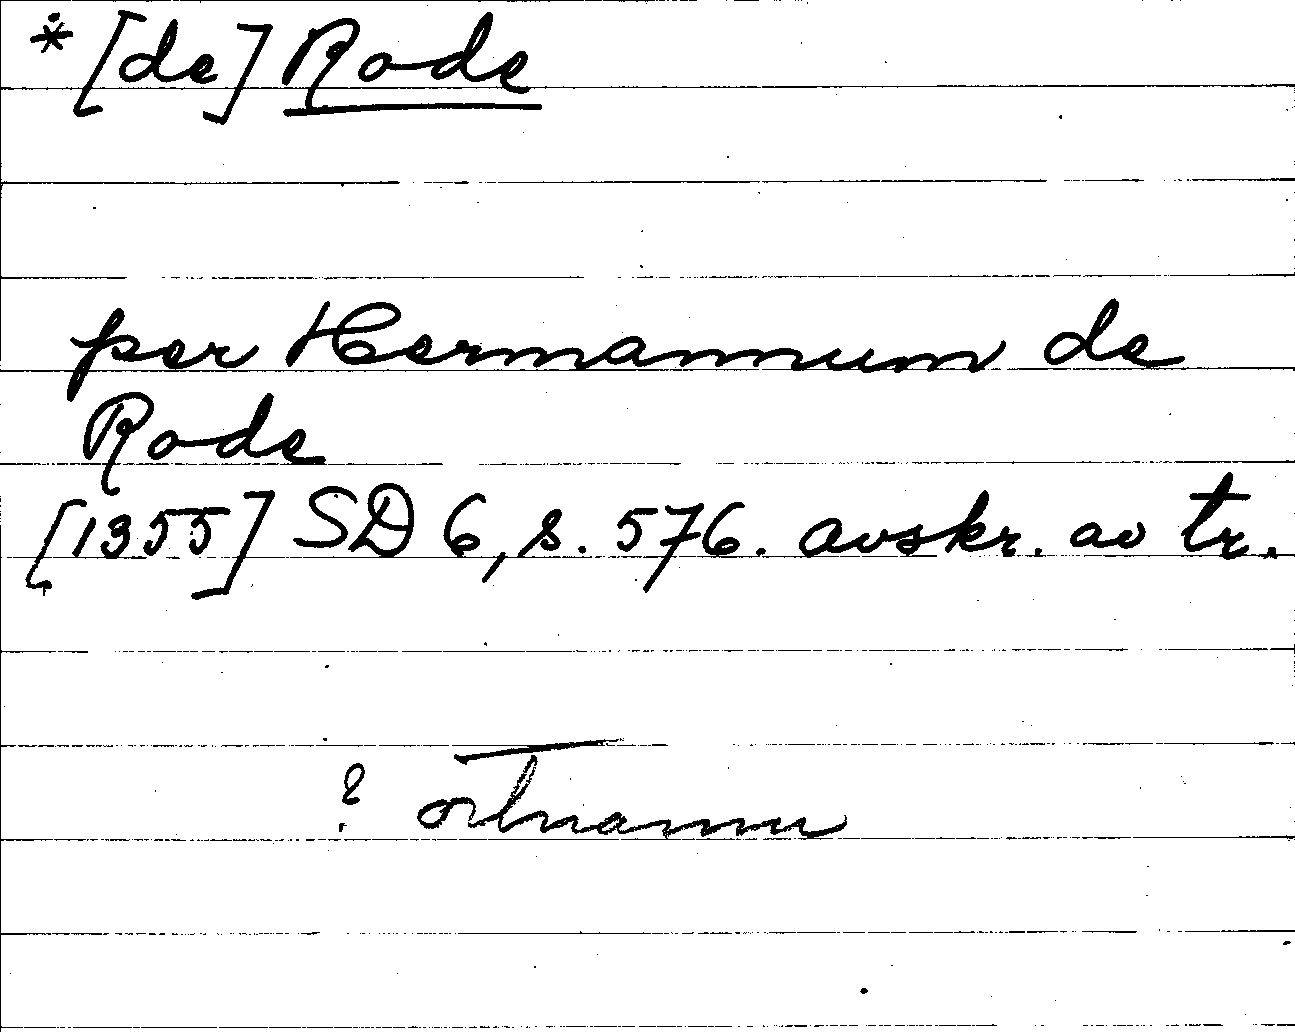 *[de] Rode
per Hermannum de
Rode
[1355] SD 6, s. 576. avskr. av tr.
? ortnamn